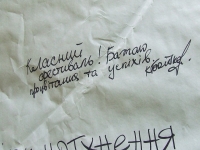 Класний
фестиваль! Бажаю
процвітання та успіхів
натхнення